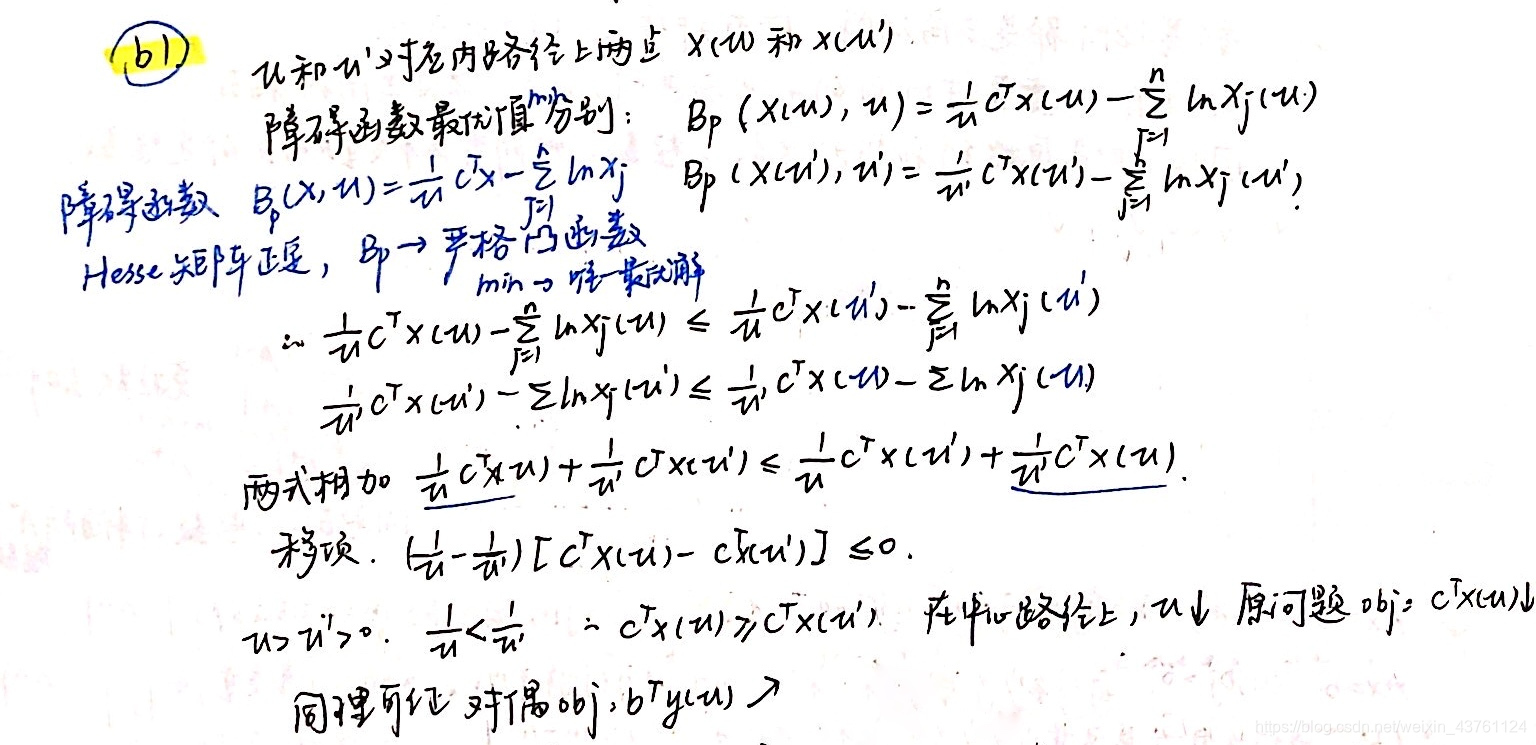 b)
u和u'对应内路径上两点 x(u) 和 x(u').
障碍函数最优值min分别: Bp(x(u), u) = 1/u cᵀx(u) - Σⁿⱼ₌₁ ln xj(u)
障碍函数 Bp(x, u) = 1/u cᵀx - Σⁿⱼ₌₁ ln xj Bp(x(u'), u') = 1/u' cᵀx(u') - Σⁿⱼ₌₁ ln xj(u')
Hesse 矩阵正定, Bp → 严格凸函数
min → 唯一最优解
∴ 1/u cᵀx(u) - Σⁿⱼ₌₁ ln xj(u) ≤ 1/u cᵀx(u') - Σⁿⱼ₌₁ ln xj(u')
1/u' cᵀx(u') - Σ ln xj(u') ≤ 1/u' cᵀx(u) - Σ ln xj(u)
两式相加 1/u cᵀx(u) + 1/u' cᵀx(u') ≤ 1/u cᵀx(u') + 1/u' cᵀx(u).
移项. (1/u - 1/u')[cᵀx(u) - cᵀx(u')] ≤ 0.
u > u' > 0. 1/u < 1/u' ∴ cᵀx(u) ≥ cᵀx(u') 在中心路径上, u↓ 原问题 obj: cᵀx(u)↓
同理可证 对偶 obj. bᵀy(u) ↗
https://blog.csdn.net/weixin_43761124